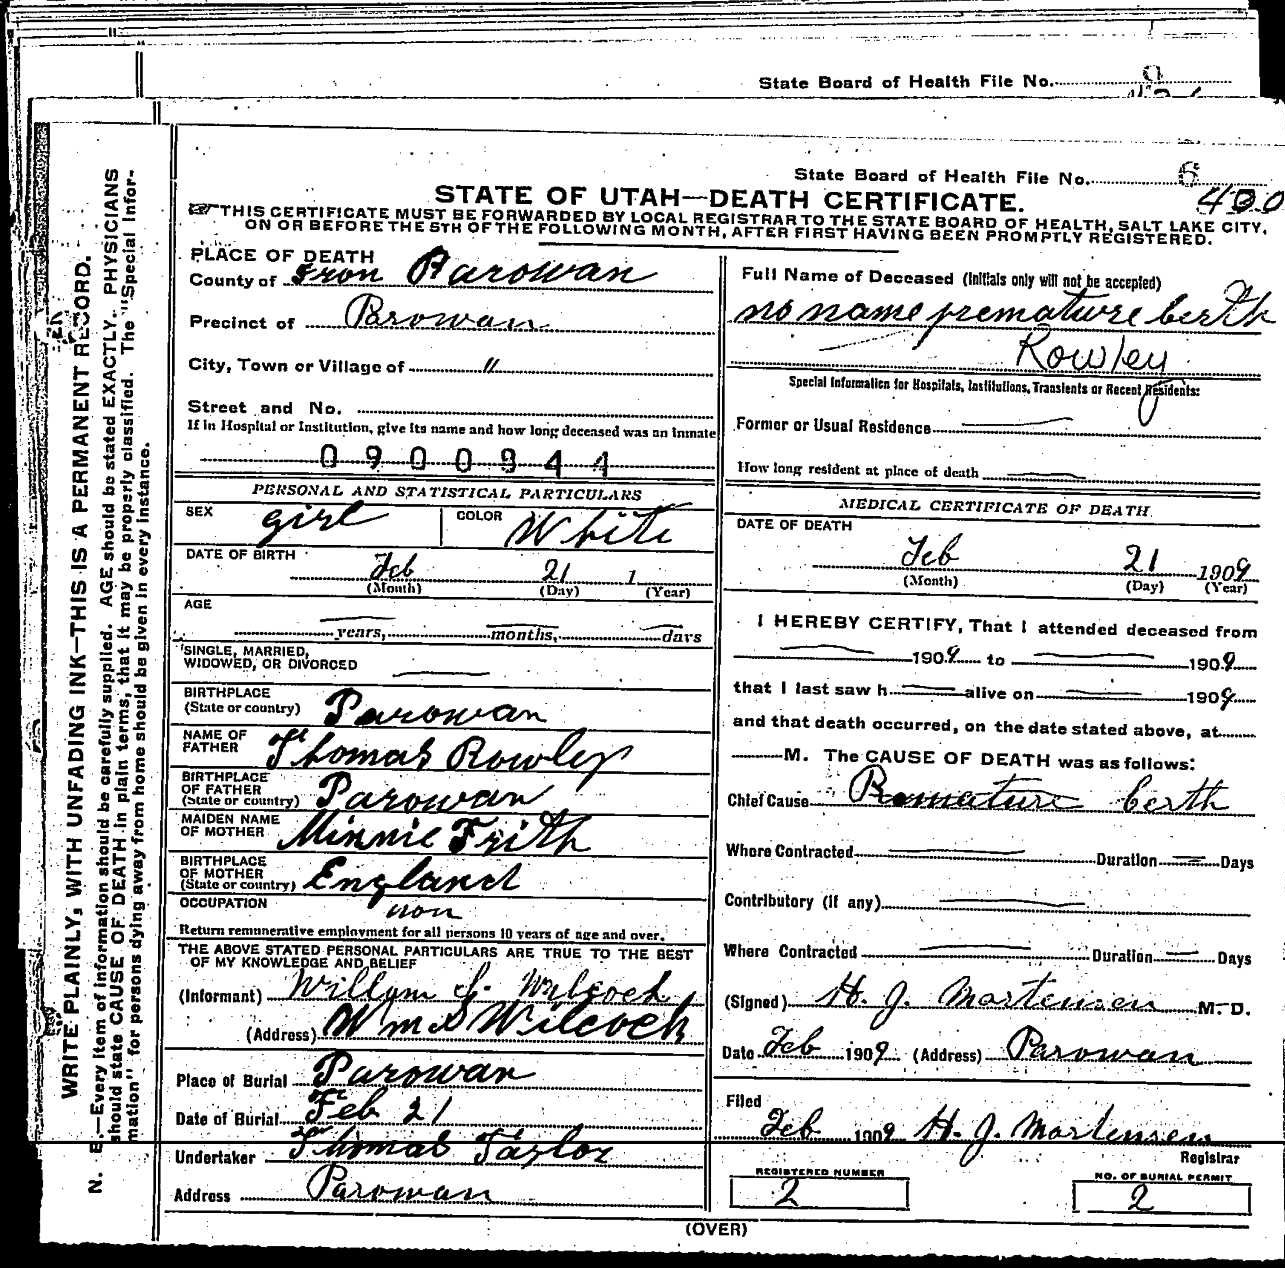 State Board of Health File No.
State Board of Health File No. 6
400
STATE OF UTAH—DEATH CERTIFICATE.
THIS CERTIFICATE MUST BE FORWARDED BY LOCAL REGISTRAR TO THE STATE BOARD OF HEALTH, SALT LAKE CITY,
ON OR BEFORE THE 5TH OF THE FOLLOWING MONTH, AFTER FIRST HAVING BEEN PROMPTLY REGISTERED.
WRITE PLAINLY, WITH UNFADING INK—THIS IS A PERMANENT RECORD.
N. B.—Every item of information should be carefully supplied. AGE should be stated EXACTLY. PHYSICIANS
should state CAUSE OF DEATH in plain terms, that it may be properly classified. The "Special Infor-
mation" for persons dying away from home should be given in every instance.
PLACE OF DEATH
County of Iron Parowan
Precinct of Parowan
City, Town or Village of "
Street and No.
If in Hospital or Institution, give its name and how long deceased was an inmate
0900944
PERSONAL AND STATISTICAL PARTICULARS
SEX girl COLOR White
DATE OF BIRTH
Feb 21 1
(Month) (Day) (Year)
AGE
years, months, days
SINGLE, MARRIED,
WIDOWED, OR DIVORCED
BIRTHPLACE
(State or country) Parowan
NAME OF
FATHER Thomas Rowley
BIRTHPLACE
OF FATHER
(State or country) Parowan
MAIDEN NAME
OF MOTHER Minnie Frith
BIRTHPLACE
OF MOTHER
(State or country) England
OCCUPATION non
Return remunerative employment for all persons 10 years of age and over.
THE ABOVE STATED PERSONAL PARTICULARS ARE TRUE TO THE BEST
OF MY KNOWLEDGE AND BELIEF
(Informant) Willam S. Wilcock
(Address) Wm S Wilcock
Place of Burial Parowan
Date of Burial Feb 21
Undertaker Thomas Taylor
Address Parowan
Full Name of Deceased (Initials only will not be accepted)
no name premature berth
Rowley
Special Information for Hospitals, Institutions, Transients or Recent Residents:
Former or Usual Residence
How long resident at place of death
MEDICAL CERTIFICATE OF DEATH
DATE OF DEATH
Feb 21 1909
(Month) (Day) (Year)
I HEREBY CERTIFY, That I attended deceased from
1909 to 1909
that I last saw h alive on 1909
and that death occurred, on the date stated above, at
M. The CAUSE OF DEATH was as follows:
Chief Cause Premature berth
Where Contracted Duration Days
Contributory (if any)
Where Contracted Duration Days
(Signed) H. J. Mortensen M. D.
Date Feb 1909 (Address) Parowan
Filed
Feb 1909 H. J. Mortensen
Registrar
REGISTERED NUMBER
2
NO. OF BURIAL PERMIT
2
(OVER)